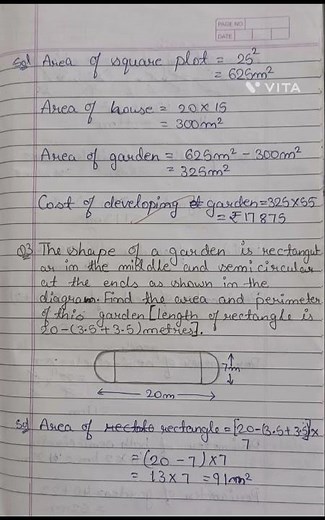 PAGE NO.
DATE
Sol Area of square plot = 25²
= 625m²
VITA
Area of house = 20 x 15
= 300m²
Area of garden = 625m² - 300m²
= 325m²
Cost of developing garden = 325 x 55
= ₹17875
Q3 The shape of a garden is rectangul
ar in the middle and semicircular
at the ends as shown in the
diagram. Find the area and perimeter
of this garden [length of rectangle is
20-(3.5+3.5) metres].
7m
20m
Sol Area of rectangle = [20-(3.5+3.5)] x
7
= (20-7) x 7
= 13 x 7 = 91m²